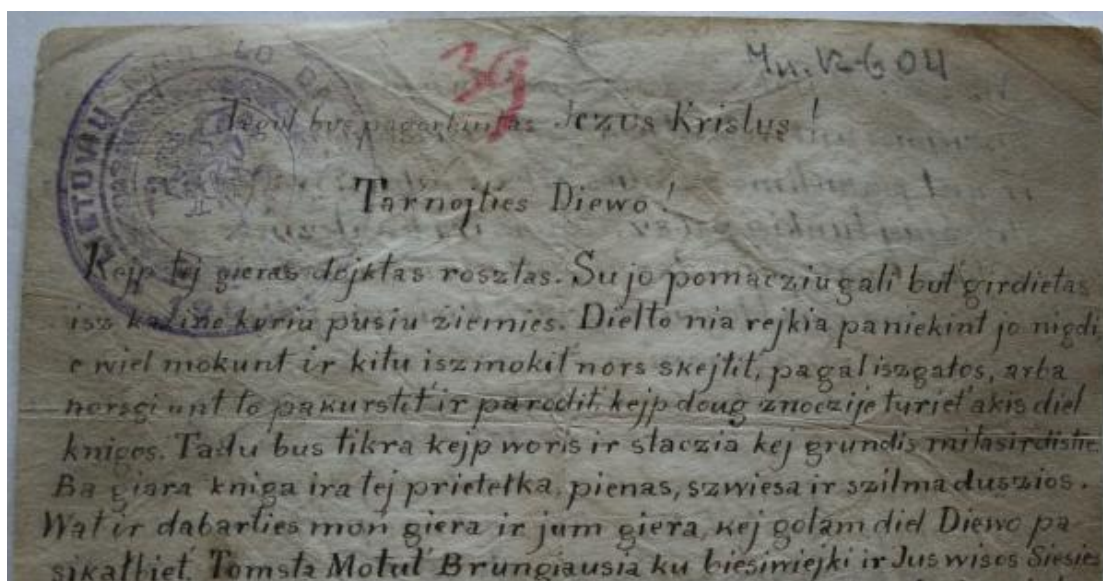 39
In. V2-604
LIETUVIŲ
Tegul bus pagarbintas Jezus Kristus!
Tarnojties Diewo!
Kejp tej gieras dajktas rosztas. Su jo pomacziu gali but girdietas
isz kożine kuriu pusiu ziemies. Dielto nia rejkia paniekint jo nigdi,
e wiel mokunt ir kitu iszmokit nors skejtit, pagal iszgatos, arba
norsgi unt to pakurstit ir parodit, kejp doug znoczije turiet akis diel
knigos. Tadu bus tikra kejp woris ir staczia kej grundis miłasirdistie.
Ba giara kniga ira tej prietełka, pienas, szwiesa ir sziłma duszios.
Wat ir dabarties mon giera ir jum giera, kej golam diel Diewo pa
sikałbiet. Tomsta Motul Brungiausia ku biesiwiejki ir Jus wisos Siesies